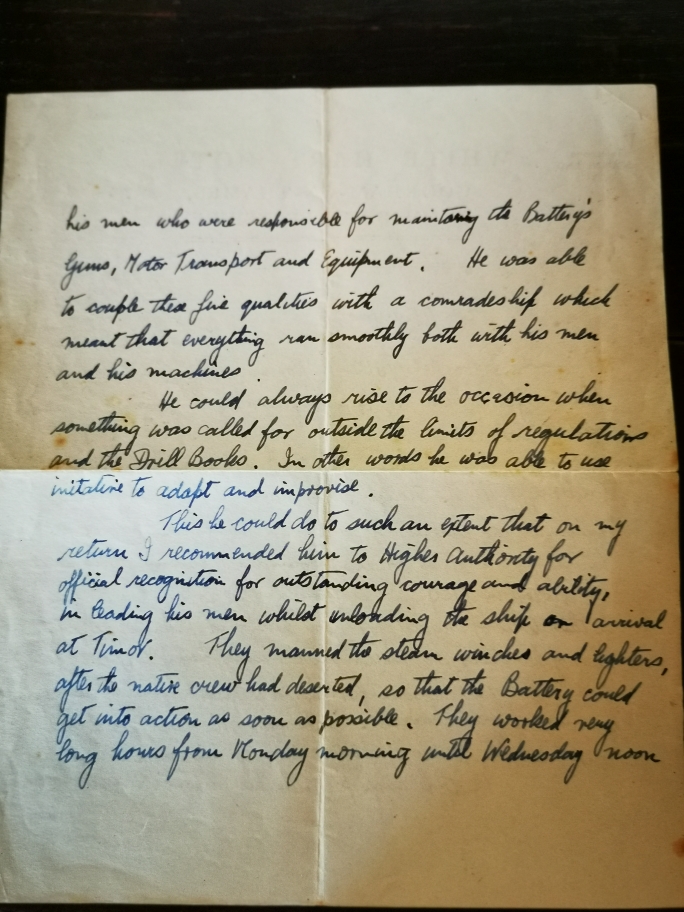 his men who were responsible for maintaing the Battery's
Guns, Motor Transport and Equipment. He was able
to couple these fine qualities with a comradeship which
meant that everything ran smoothly both with his men
and his machines.
He could always rise to the occasion when
something was called for outside the limits of regulations
and the Drill Books. In other words he was able to use
initative to adapt and improvise.
This he could do to such an extent that on my
return I recommended him to Higher Authority for
official recognition for outstanding courage and ability,
in leading his men whilst unloading the ship on arrival
at Timor. They manned the steam winches and lighters,
after the native crew had deserted, so that the Battery could
get into action as soon as possible. They worked very
long hours from Monday morning until Wednesday noon